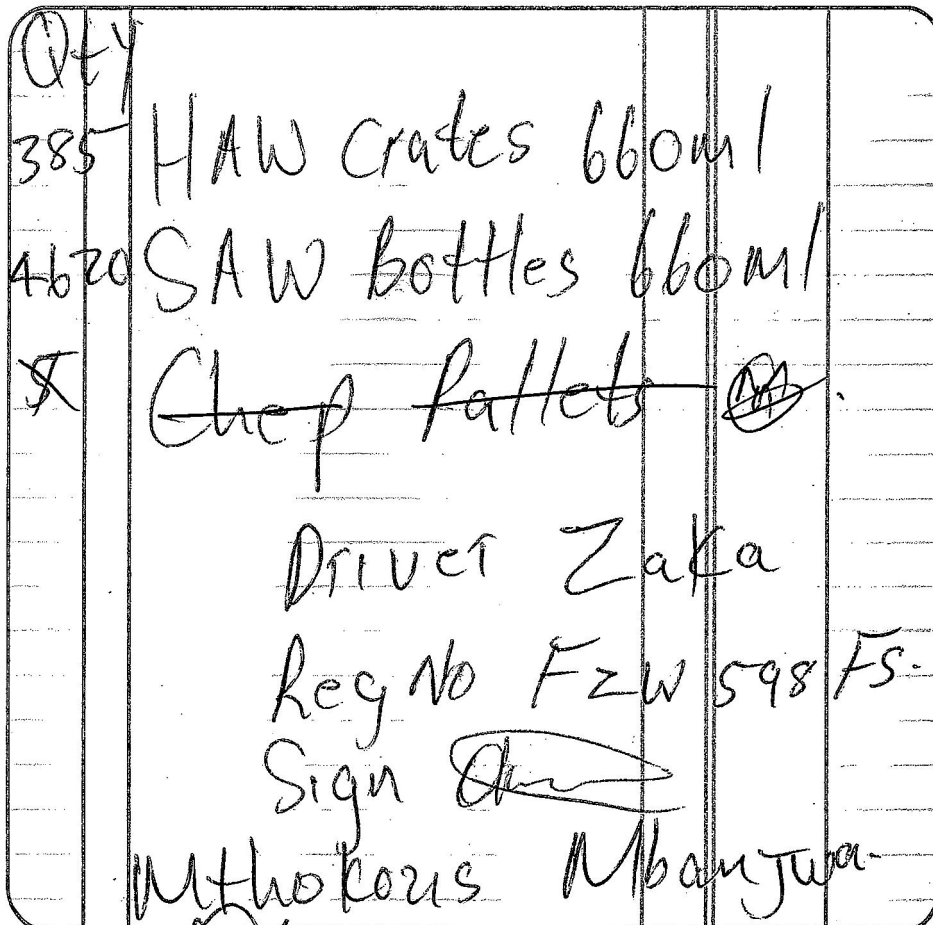 Qty
385 HAW Crates 660ml
4620 SAW Bottles 660ml
Chep Pallets
Driver Zaka
Reg No FZW 598 FS.
Sign
Mthokozis Mbanjwa.